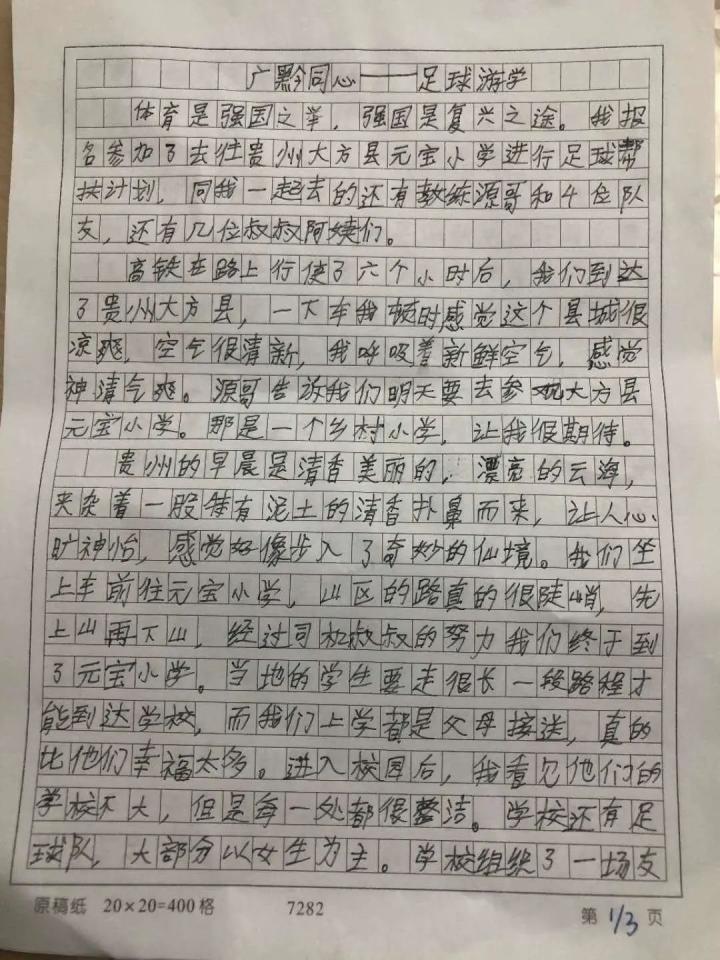 广黔同心——足球游学
体育是强国之举，强国是复兴之途。我报
名参加了去往贵州大方县元宝小学进行足球帮
扶计划，同我一起去的还有教练源哥和4位队
友，还有几位叔叔阿姨们。
高铁在路上行使了六个小时后，我们到达
了贵州大方县，一下车我顿时感觉这个县城很
凉爽，空气很清新，我呼吸着新鲜空气，感觉
神清气爽。源哥告放我们明天要去参观大方县
元宝小学。那是一个乡村小学，让我很期待。
贵州的早晨是清香美丽的，漂亮的云海，
夹杂着一股带有泥土的清香扑鼻而来，让人心
旷神怡，感觉好像步入了奇妙的仙境。我们坐
上车前往元宝小学，山区的路真的很陡峭，先
上山再下山，经过司机叔叔的努力我们终于到
了元宝小学。当地的学生要走很长一段路程才
能到达学校，而我们上学都是父母接送，真的
比他们幸福太多。进入校园后，我看见他们的
学校不大，但是每一处都很整洁。学校还有足
球队，大部分以女生为主。学校组织了一场友
原稿纸 20×20=400格 7282 第1/3页